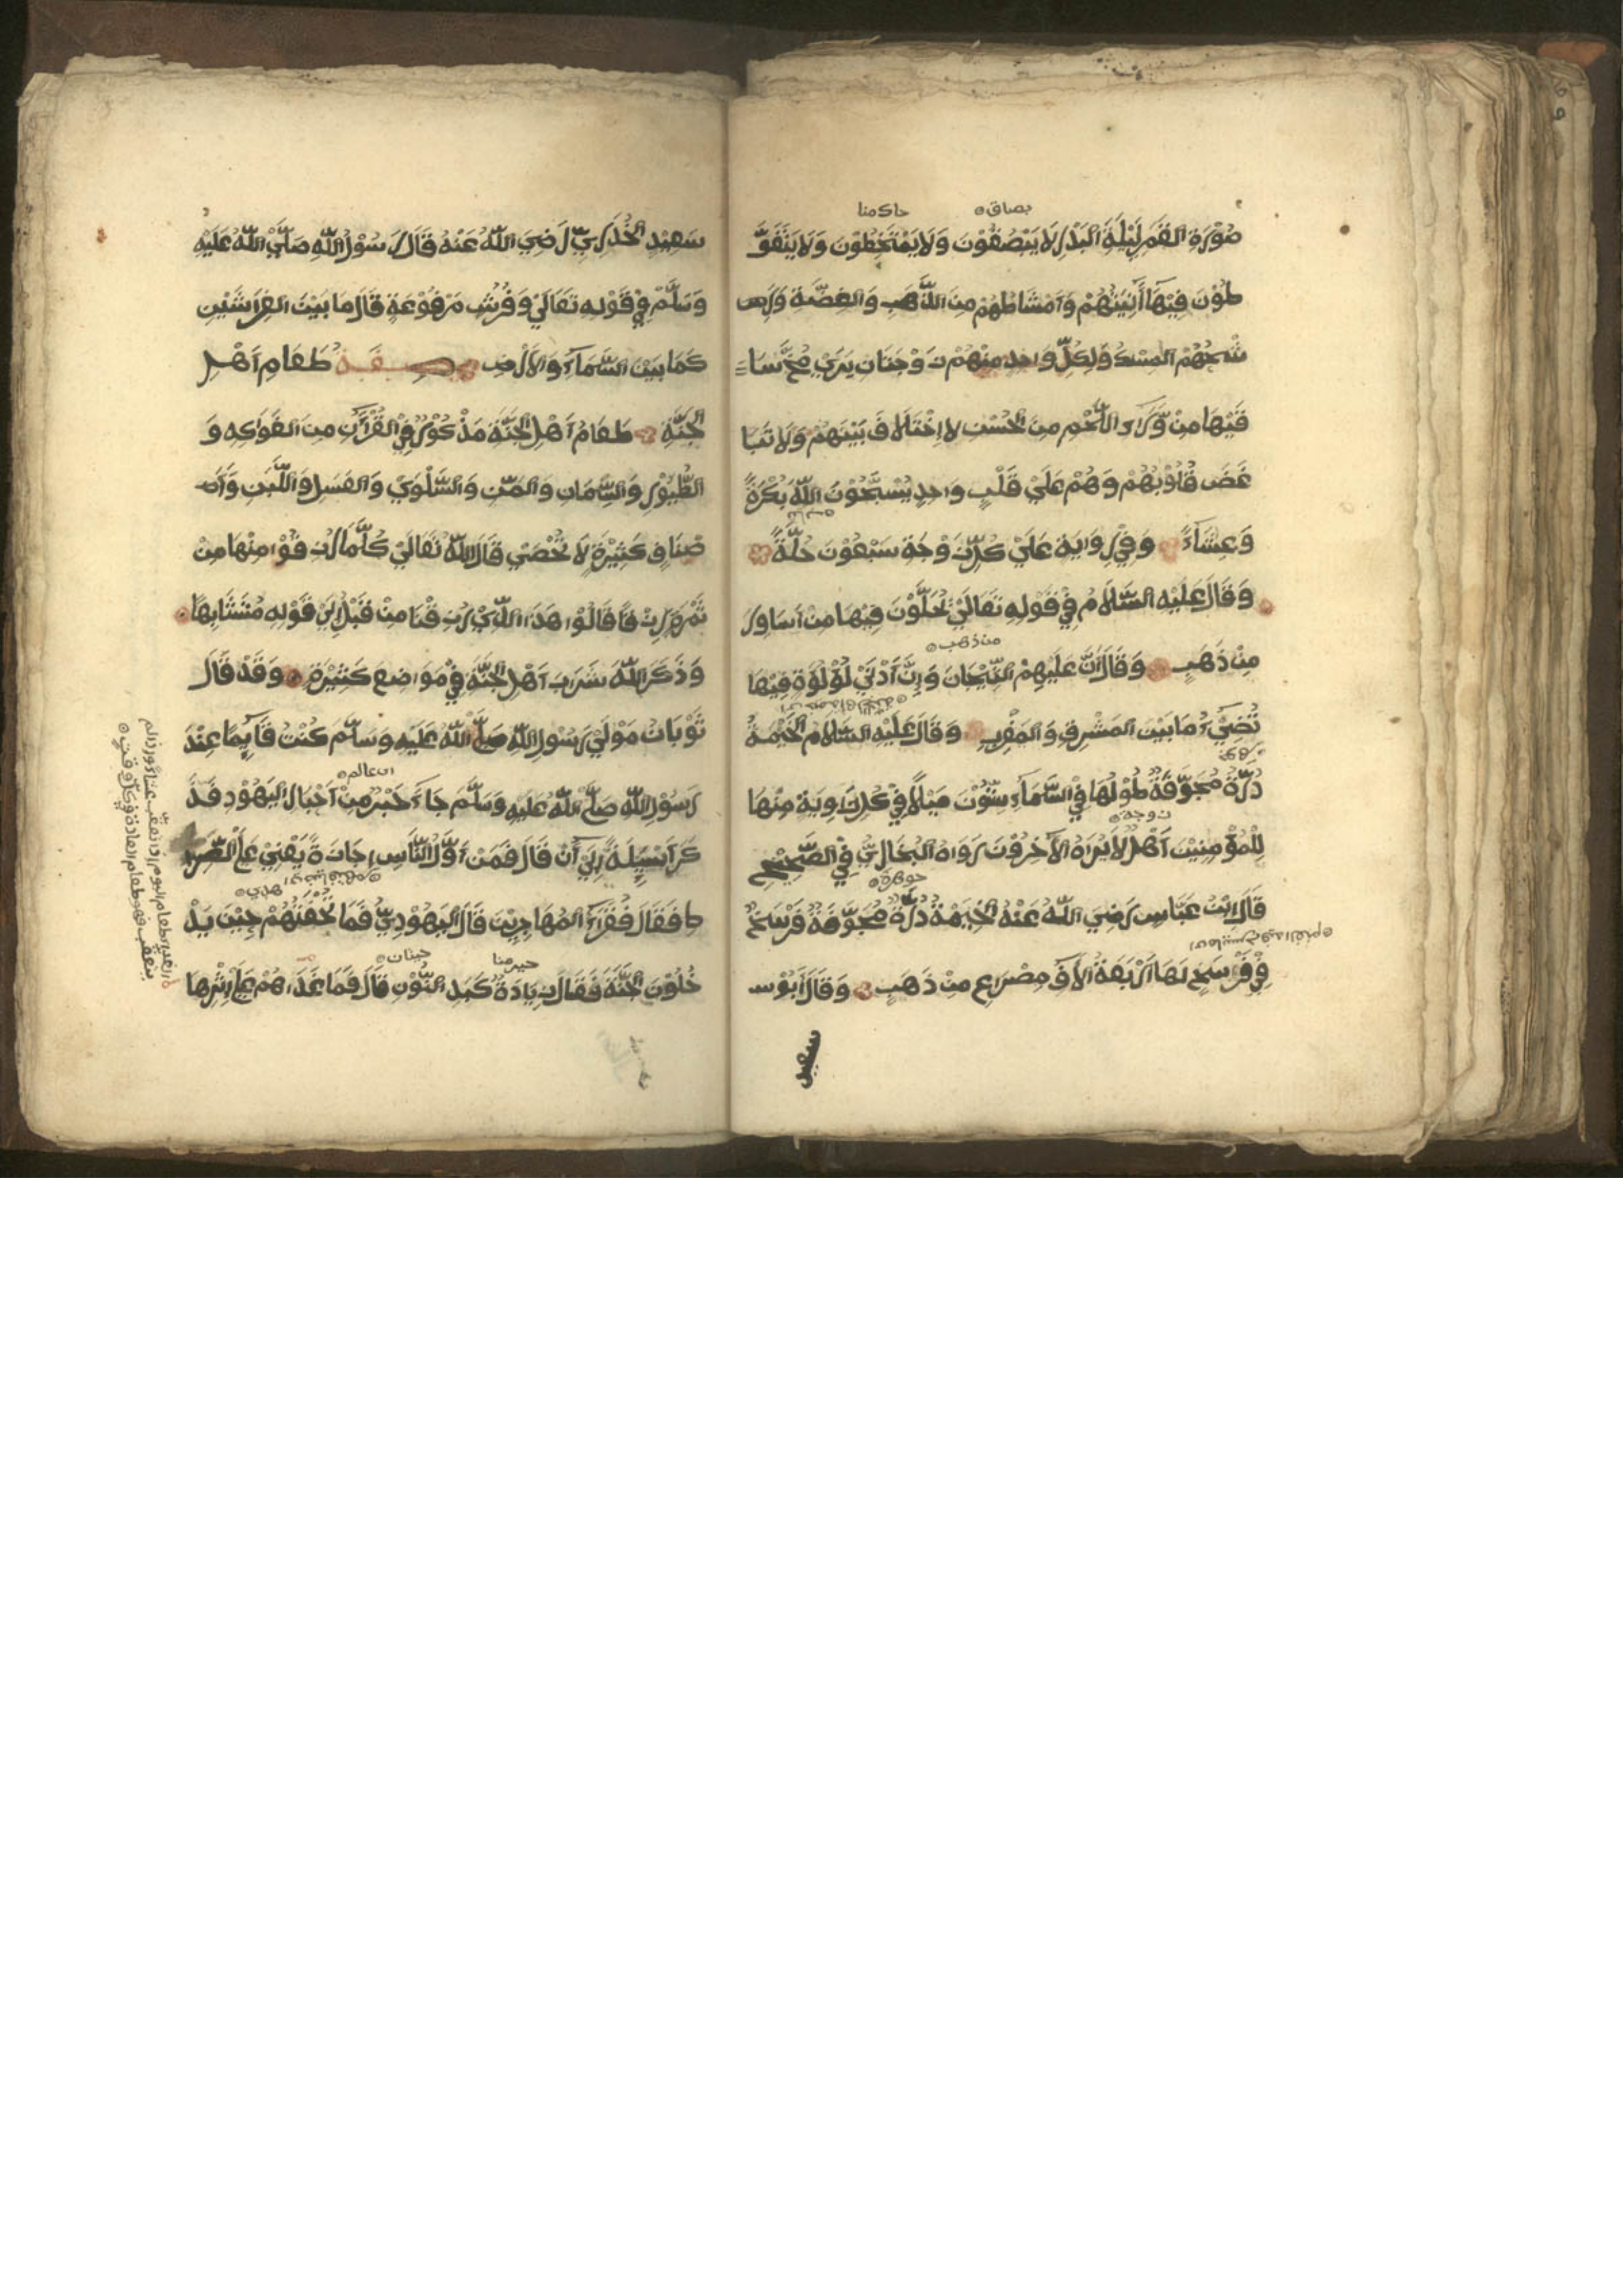 صُوْرَةِ القَمَرِ لَيْلَةَ البَدْرِ لَا يَبْصُقُوْنَ وَلَا يَمْتَخِطُوْنَ وَلَا يَتَغَوَّ
طُوْنَ فِيْهَا أَنِيَتُهُمْ وَأَمْشَاطُهُمْ مِنَ الذَّهَبِ وَالفِضَّةِ وَرَ
شْحُهُمْ المِسْكُ وَلِكُلِّ وَاحِدٍ مِنْهُمْ زَوْجَتَانِ يَرَيْ مُخَّ سَا
قَيْهَا مِنْ وَّرَاءِ اللَّحْمِ مِنَ الْحُسْنِ لَا اِخْتَلَافَ بَيْنَهُمْ وَلَا تَبَا
غَضَ قُلُوْبُهُمْ وَهُمْ عَلَيْ قَلْبٍ وَاحِدٍ يُسَبِّحُوْنَ اللّٰهَ بُكْرَةً
وَعِشَاءً وَفِيْ رِوَايَةٍ عَلَيْ كُلِّ زَوْجَةٍ سَبْعُوْنَ حُلَّةً
وَقَالَ عَلَيْهِ السَّلَامُ فِيْ قَوْلِهِ تَعَالَيْ يُحَلَّوْنَ فِيْهَا مِنْ اَسَاوِرَ
مِنْ ذَهَبٍ وَقَالَ اِنَّ عَلَيْهِمْ التِّيْجَانَ وَاِنَّ أَدْنَيْ لُؤْلُؤَةٍ فِيْهَا
تُضِيْءُ مَا بَيْنَ المَشْرِقِ وَالمَغْرِبِ وَقَالَ عَلَيْهِ السَّلَامُ الْخَيْمَةُ
دُرَّةٌ مُجَوَّفَةٌ طُوْلُهَا فِيْ السَّمَاءِ سِتُّوْنَ مِيْلًا فِيْ كُلِّ زَاوِيَةٍ مِنْهَا
لِلْمُؤْمِنِيْنَ أَهْلٌ لَا يَرَاهُ الْآخَرُوْنَ رَوَاهُ البُخَارِيُّ فِيْ الصَّحِيْحِ
قَالَ اِبْنُ عَبَّاسٍ رَضِيَ اللّٰهُ عَنْهُ الْخَيْمَةُ دُرَّةٌ مُجَوَّفَةٌ فَرْسَخٌ
فِيْ فَرْسَخٍ لَهَا اَرْبَعَةُ الْافِ مِصْرَاعٍ مِنْ ذَهَبٍ وَقَالَ أَبُوْ سـ
بصاق
من ذهب
زوجة
جوهرة
سعيد
سَعِيْدِ الْخُدْرِيِّ رَضِيَ اللّٰهُ عَنْهُ قَالَ رَسُوْلُ اللّٰهِ صَلَّيْ اللّٰهُ عَلَيْهِ
وَسَلَّمْ فِيْ قَوْلِهِ تَعَالَيْ وَفُرُشٍ مَرْفُوْعَةٍ قَالَ مَا بَيْنَ الفِرَاشَيْنِ
كَمَا بَيْنَ السَّمَاءِ وَالْاَرْضِ صـفـة طَعَامِ اَهْلِ
الْجَنَّةِ طَعَامُ اَهْلِ الْجَنَّةِ مَذْكُوْرٌ فِيْ القُرْآنِ مِنَ الفَوَاكِهِ وَ
الطُّيُوْرِ وَالسِّمَانِ وَالمَنِّ وَالسَّلْوَيْ وَالعَسَلِ وَاللَّبَنِ وَأَ
صْنَافٍ كَثِيْرَةٍ لَا تُحْصَيْ قَالَ اللّٰهُ تَعَالَيْ كُلَّمَا رُزِقُوْا مِنْهَا مِنْ
ثَمَرَةٍ رِزْقًا قَالُوْا هَذَا الَّذِيْ رُزِقْنَا مِنْ قَبْلُ اِلَيْ قَوْلِهِ مُتَشَابِهًا
وَذَكَرَ اللّٰهَ شَرَابَ اَهْلِ الْجَنَّةِ فِيْ مَوَاضِعَ كَثِيْرَةٍ وَقَدْ قَالَ
ثَوْبَانُ مَوْلَيْ رَسُوْلِ اللّٰهِ صَلَّيْ اللّٰهُ عَلَيْهِ وَسَلَّمَ كُنْتُ قَائِمًا عِنْدَ
رَسُوْلِ اللّٰهِ صَلَّيْ اللّٰهُ عَلَيْهِ وَسَلَّمَ جَاءَ حَبْرٌ مِنْ اَحْبَارِ اليَهُوْدِ فَذَ
كَرَ اَسْئِلَةً اِلَيْ أَنْ قَالَ فَمَنْ اَوَّلُ النَّاسِ اِجَازَةً يَعْنِيْ عَلَي الصِّرَا
طِ فَقَالَ فُقَرَاءُ المُهَاجِرِيْنَ قَالَ اليَهُوْدِيُّ فَمَا تُحْفَتُهُمْ حِيْنَ يَدْ
خُلُوْنَ الْجَنَّةَ فَقَالَ زِيَادَةُ كَبِدِ النُّوْنِ قَالَ فَمَا غَذَاءُهُمْ عَلَي اِثْرِهَا
اي عالم